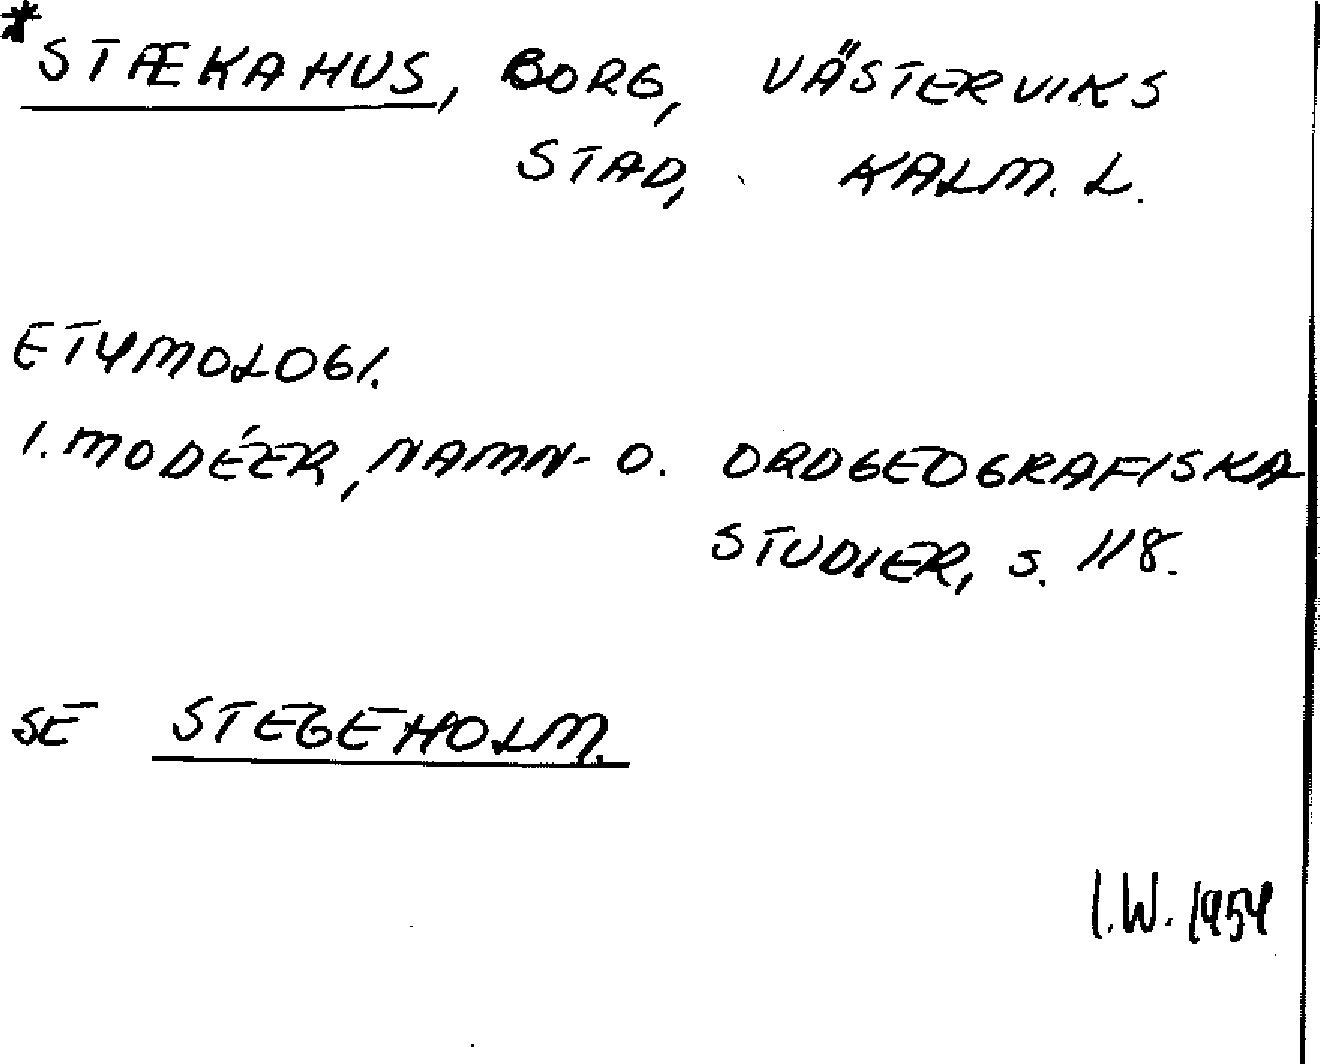 *STÆKAHUS, BORG, VÄSTERVIKS
STAD, KALM. L.
ETYMOLOGI.
I. MODÉER, NAMN- O. ORDGEOGRAFISKA
STUDIER, S. 118.
SE STEGEHOLM.
I.W. 1954